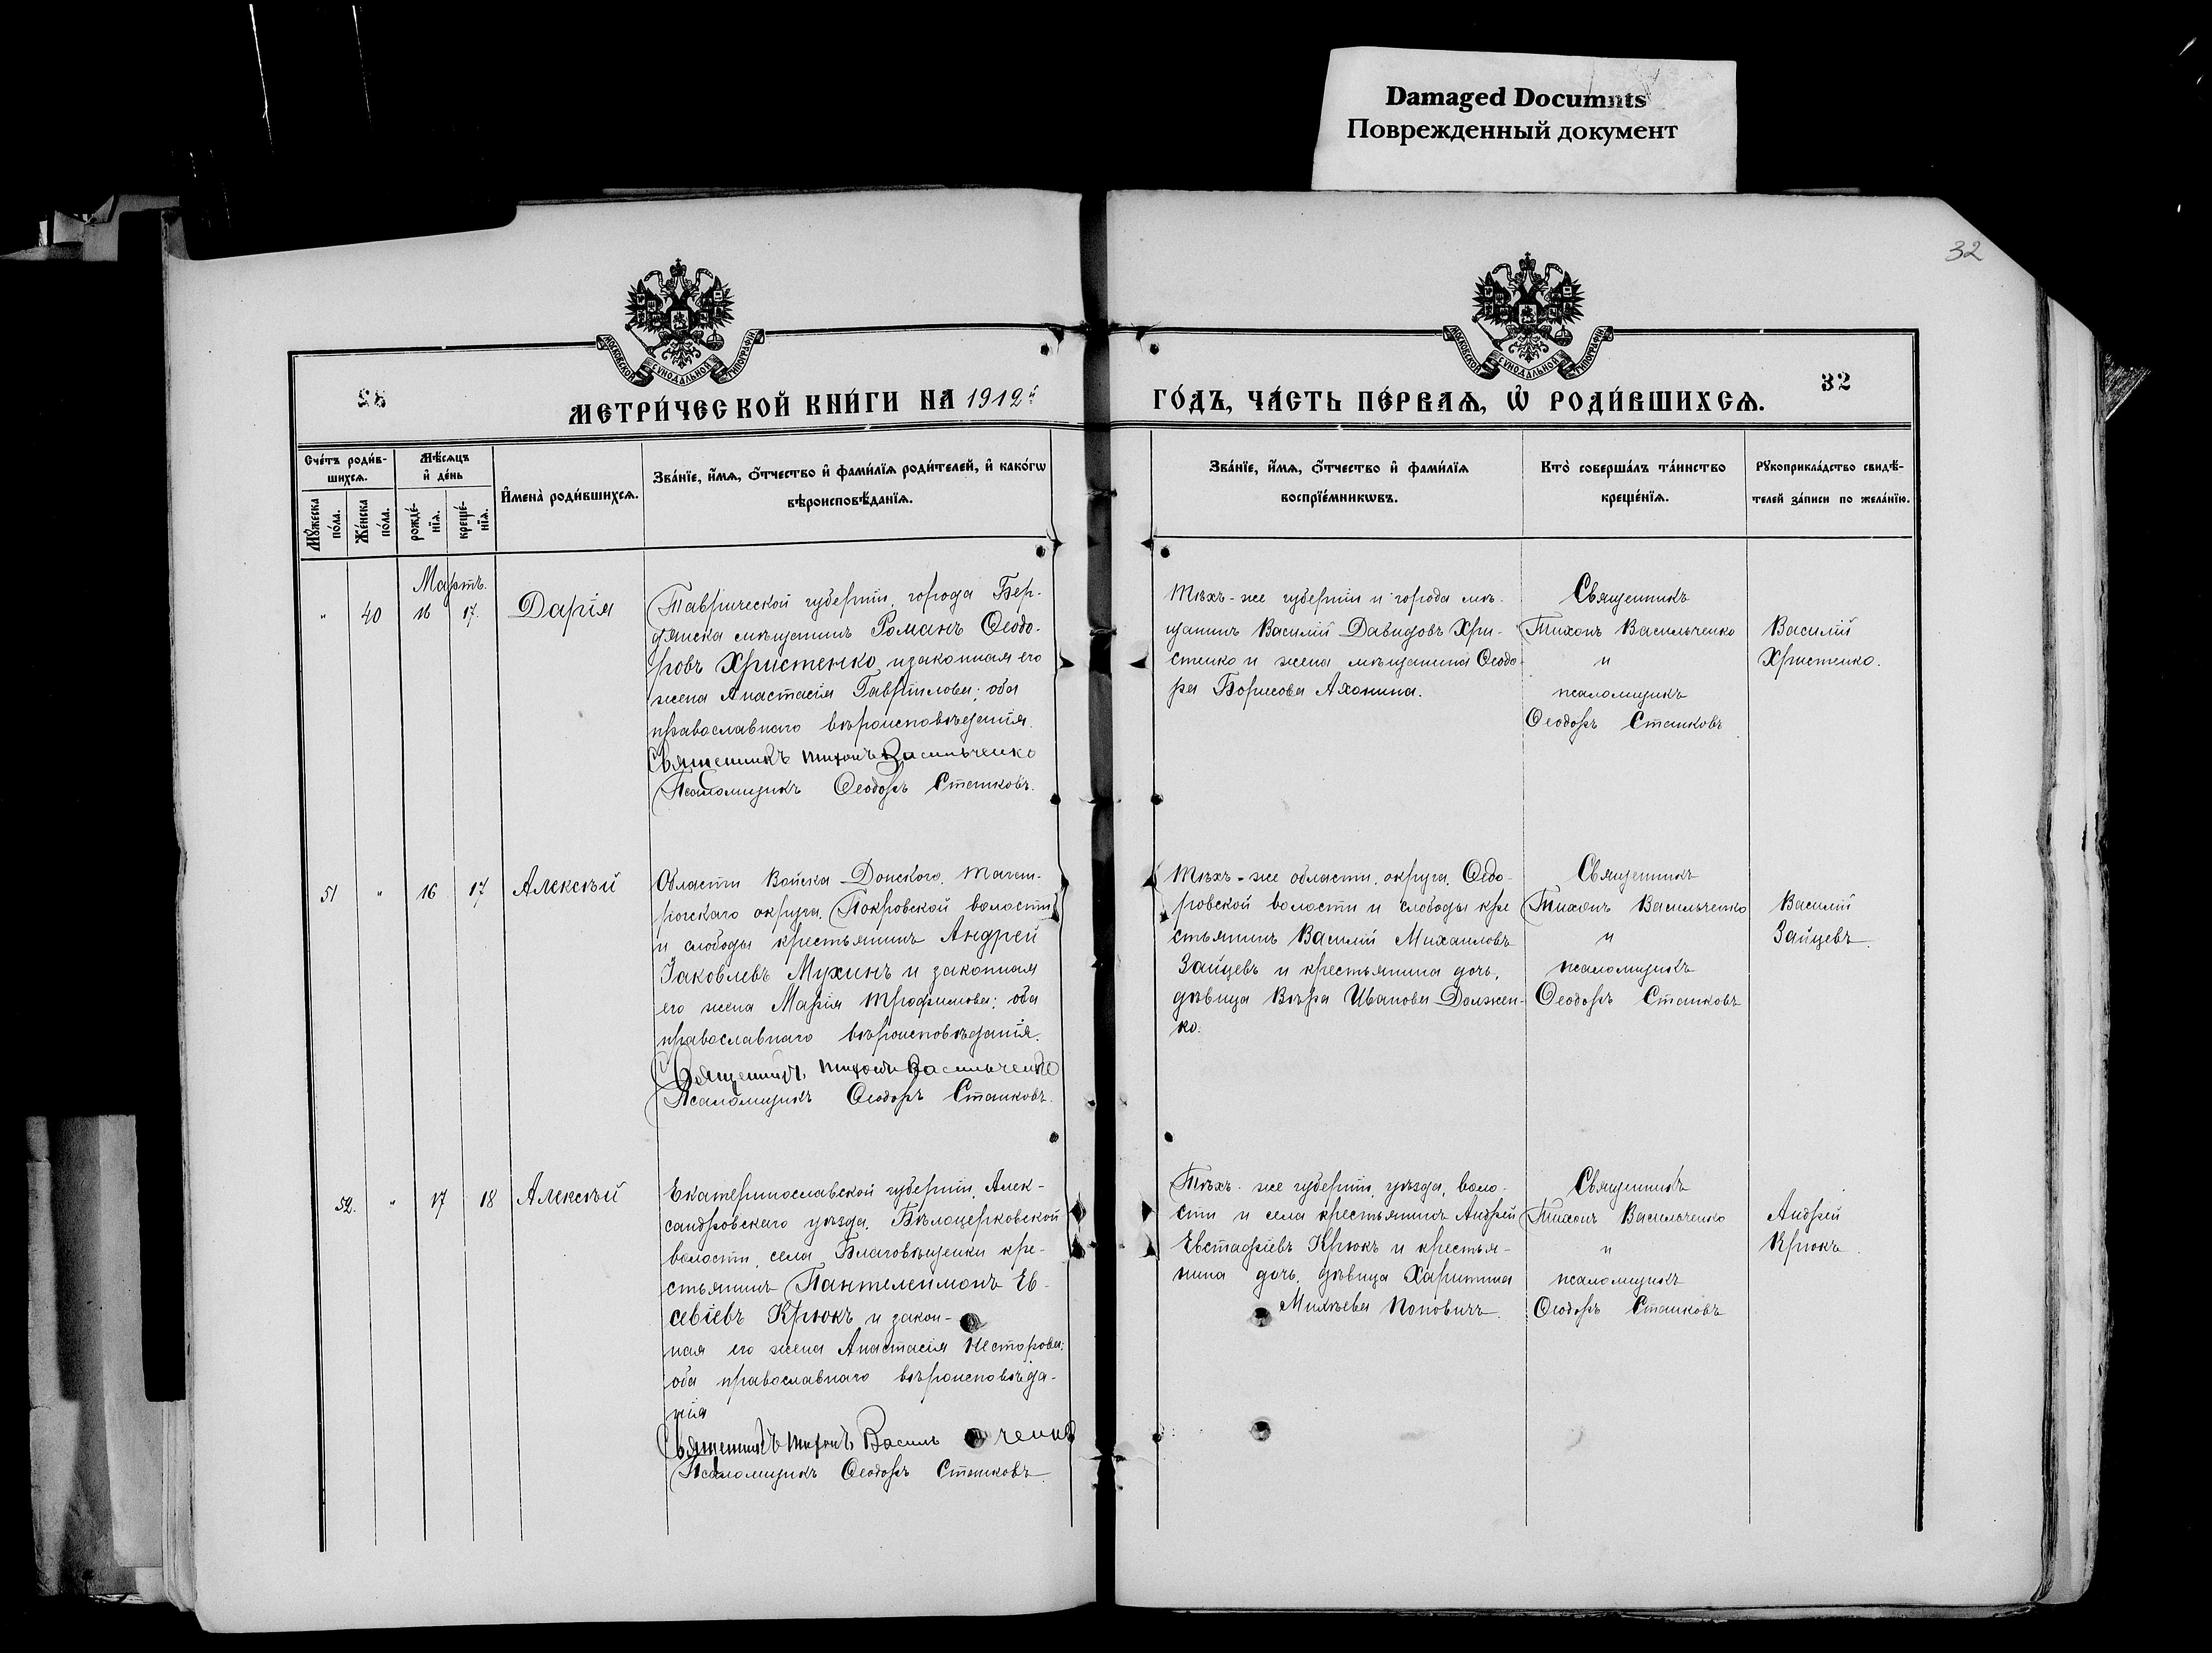 Damaged Documnts
Поврежденный документ
32
МОСКОВСКОЙ СУНОДАЛЬНОЙ ТИПОГРАФІИ
МОСКОВСКОЙ СУНОДАЛЬНОЙ ТИПОГРАФІИ
МЕТРИ́ЧЕСКОЙ КНИ́ГИ НА 1912й
ГО́ДЪ, ЧА́СТЬ ПЕ́РВАѦ, Ѡ҆ РОДИ́ВШИХСѦ.
32
Сче́тъ роди́в-
шихсѧ.
Мꙋ́жеска по́ла.
Же́нска по́ла.
Мѣ́сѧцъ
и҆ де́нь
рожде́-
нїѧ.
креще́-
нїѧ.
И҆мена̀ роди́вшихсѧ.
Зва́нїе, и҆́мѧ, ѻ҆́тчество и҆ фами́лїѧ роди́телей, и҆ како́гѡ
вѣроисповѣ́данїѧ.
Зва́нїе, и҆́мѧ, ѻ҆́тчество и҆ фами́лїѧ
воспрїе́мникѡвъ.
Кто̀ соверша́лъ та́инство
креще́нїѧ.
Рꙋкоприкла́дство свидѣ́-
телей за́писи по жела́нїю.
Мартъ.
" 40 16 17. Дарія
Таврической губерніи, города Бер-
дянска мѣщанинъ Романъ Ѳеодо-
ровъ Христенко и законная его
жена Анастасія Гаврилова; оба
православнаго вѣроисповѣданія.
Священникъ Тихонъ Васильченко
Псаломщикъ Ѳеодоръ Станковъ.
Тѣхъ-же губерніи и города мѣ-
щанинъ Василій Давидовъ Хри-
стенко и жена мѣщанина Ѳеодо-
ра Борисова Ахонина.
Священникъ
Тихонъ Васильченко
и
псаломщикъ
Ѳеодоръ Станковъ
Василій
Христенко.
51 " 16 17 Алексѣй
Области Войска Донского, Таган-
рогскаго округа, Покровской волости
и слободы крестьянинъ Андрей
Іаковлевъ Мухинъ и законная
его жена Марія Трофимова; оба
православнаго вѣроисповѣданія.
Священникъ Тихонъ Васильченко
Псаломщикъ Ѳеодоръ Станковъ.
Тѣхъ-же области, округа, Ѳедо-
ровской волости и слободы кре
стьянинъ Василій Михаиловъ
Зайцевъ и крестьянина дочь,
дѣвица Вѣра Иванова Должен-
ко.
Священникъ
Тихонъ Васильченко
и
псаломщикъ
Ѳеодоръ Станковъ
Василій
Зайцевъ.
52. " 17 18 Алексѣй
Екатеринославской губерніи, Алек-
сандровскаго уѣзда, Бѣлоцерковской
волости, села Благовѣщенки кре-
стьянинъ Пантелеимонъ Ев-
севіевъ Крюкъ и закон-
ная его жена Анастасія Несторова;
оба православнаго вѣроисповѣда-
нія
Священникъ Тихонъ Васильченко
Псаломщикъ Ѳеодоръ Станковъ.
Тѣхъ-же губерніи, уѣзда, воло-
сти и села крестьянинъ Андрей
Евстафіевъ Крюкъ и крестья-
нина дочь, дѣвица Харитина
Михѣева Поповичъ.
Священникъ
Тихонъ Васильченко
и
псаломщикъ
Ѳеодоръ Станковъ
Андрей
Крюкъ.